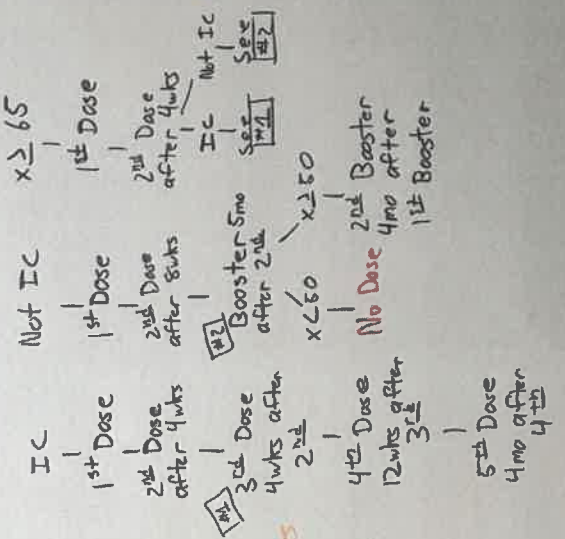 IC
1st Dose
2nd Dose
after 4wks
#1
3rd Dose
4wks after
2nd
4th Dose
12wks after
3rd
5th Dose
4mo after
4th
Not IC
1st Dose
2nd Dose
after 8wks
#2
Booster 5mo
after 2nd
x<50
No Dose
x≥50
2nd Booster
4mo after
1st Booster
x≥65
1st Dose
2nd Dose
after 4wks
IC
See
#1
Not IC
See
#2
5